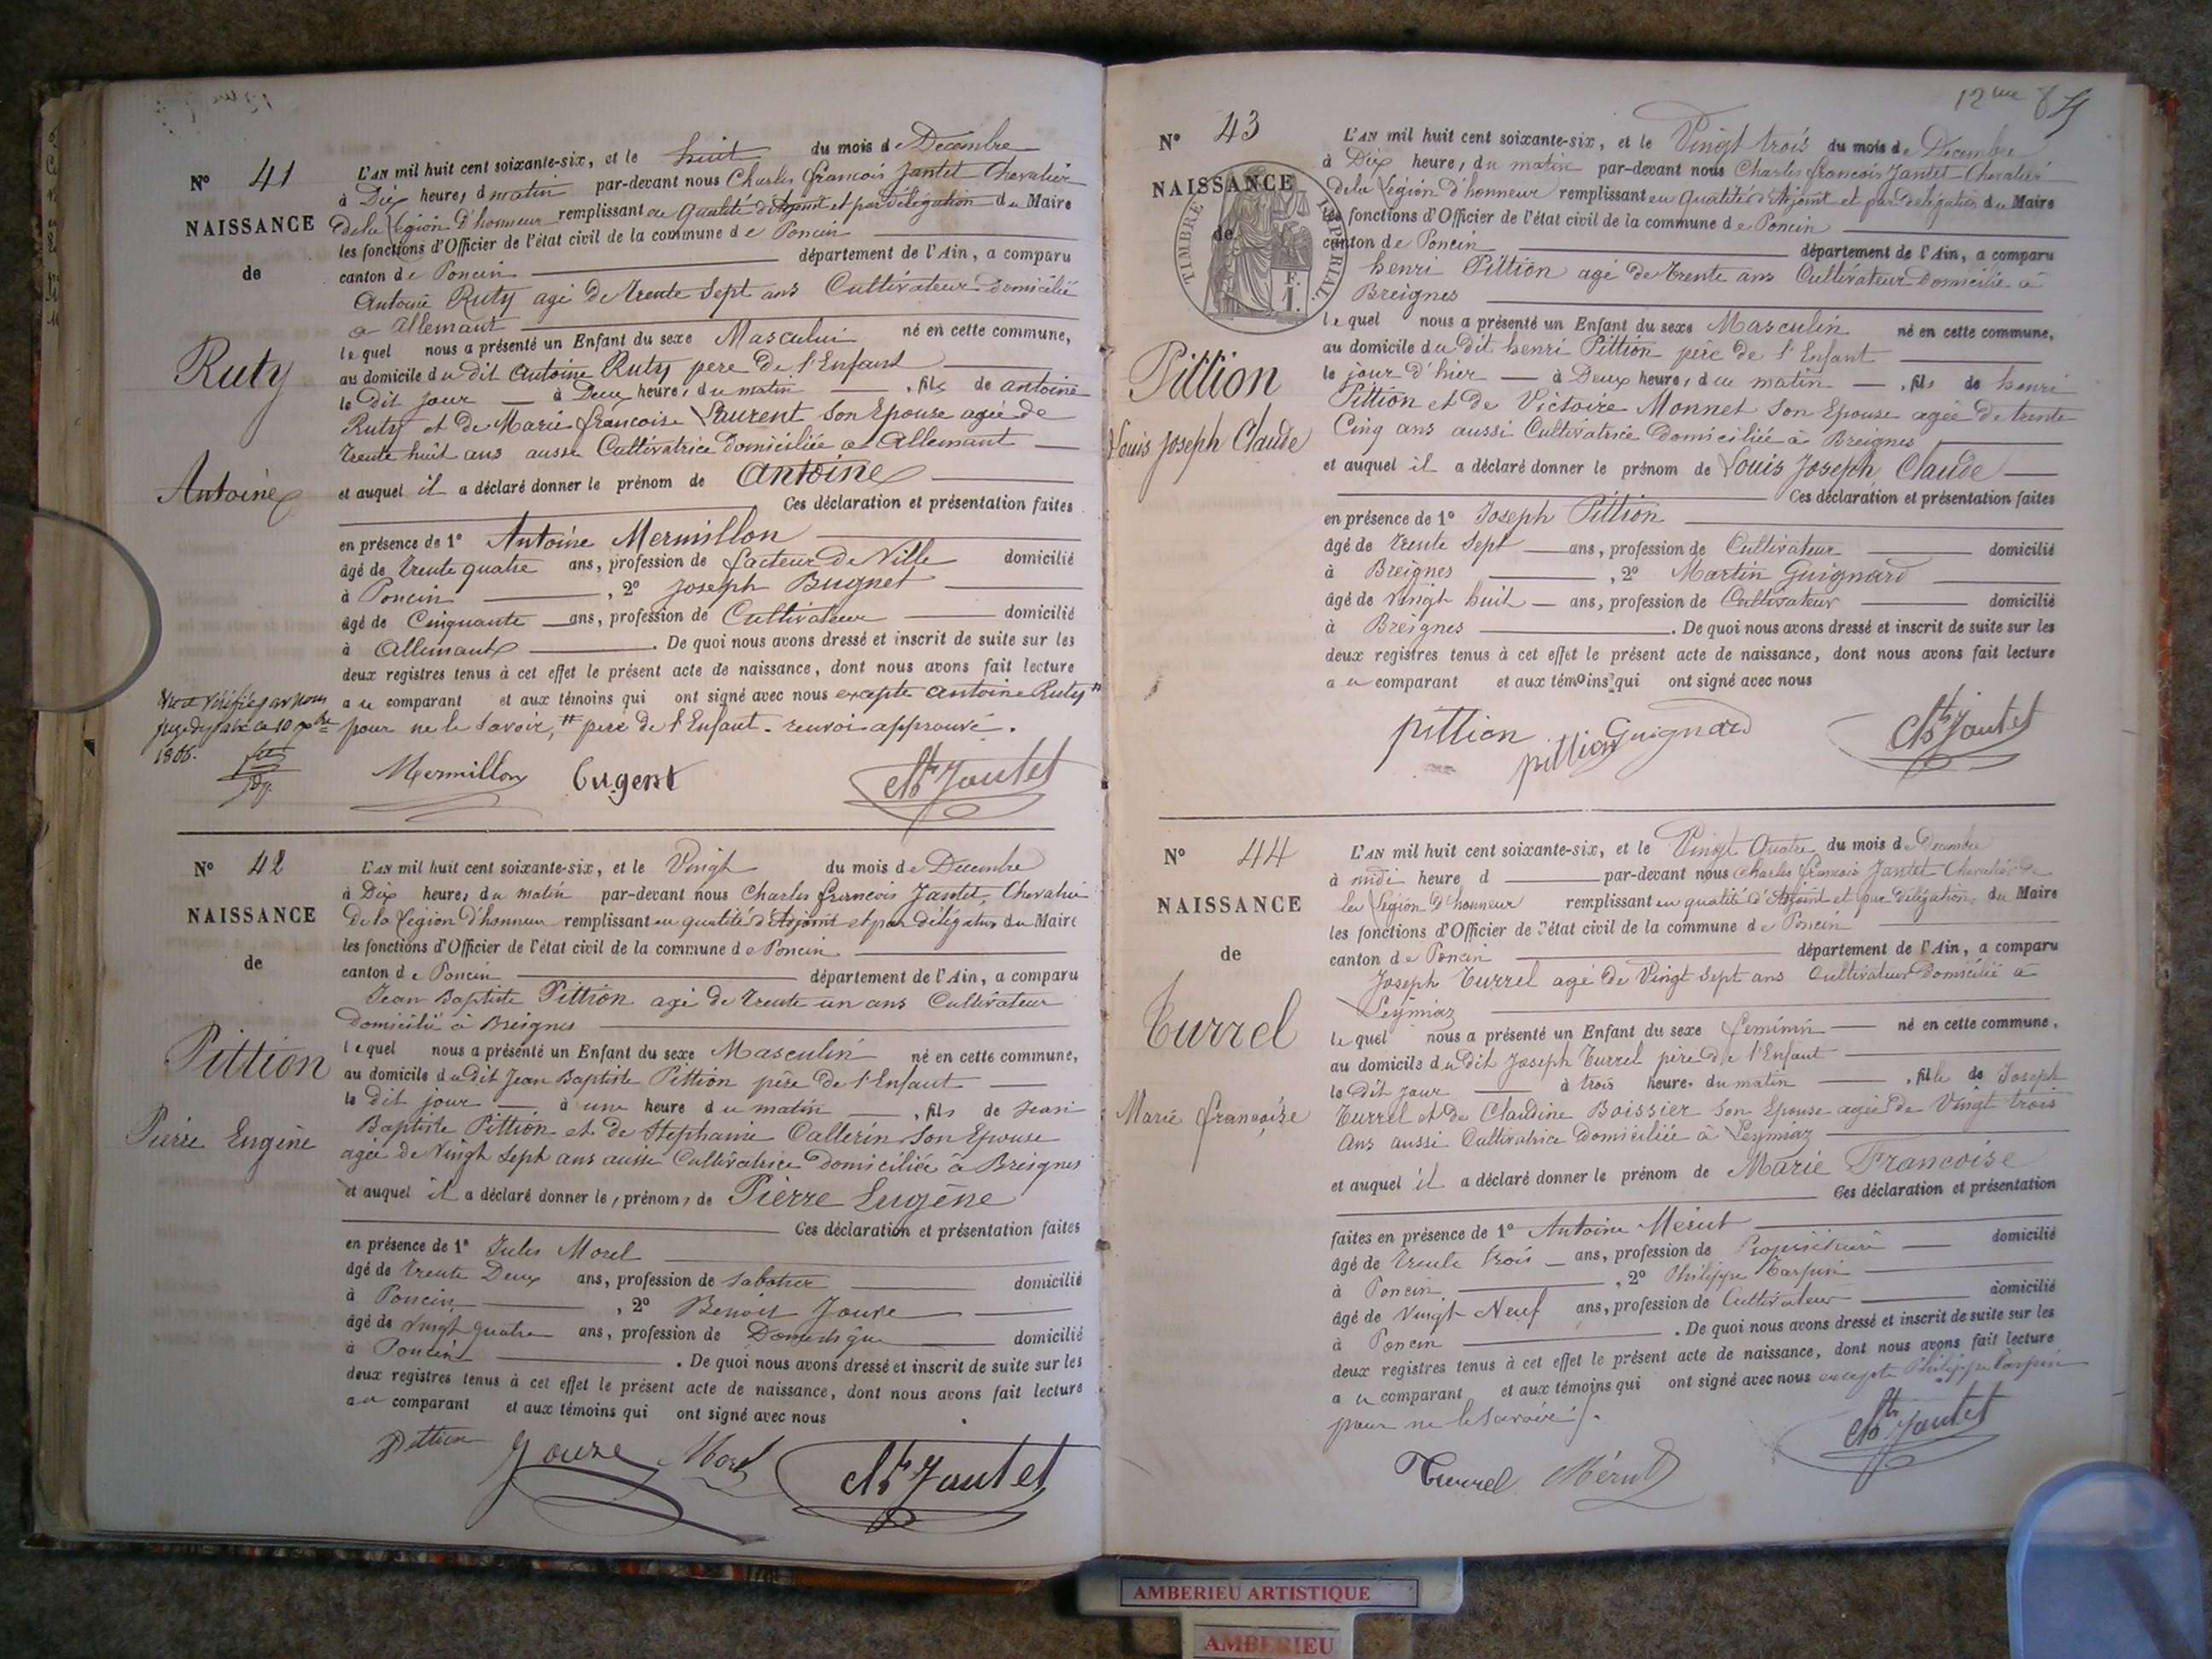 Nº 41
NAISSANCE
de
Ruty
Antoine
L'AN mil huit cent soixante-six, et le huit du mois de Décembre
à Dix heures du matin par-devant nous Charles francois Jantet Chevalier
de la Légion d'honneur remplissant en Qualité d'Adjoint et par délégation du Maire
les fonctions d'Officier de l'état civil de la commune de Poncin
canton de Poncin département de l'Ain, a comparu
Antoine Ruty agé de trente Sept ans Cultivateur domicilié
a Allemant
lequel nous a présenté un Enfant du sexe Masculin né en cette commune,
au domicile du dit Antoine Ruty pere de l'Enfant
le dit jour à Deux heures du matin, fils de antoine
Ruty et de Marie francoise Laurent Son Epouse agée de
trente huit ans aussi Cultivatrice domiciliée a Allemant
et auquel il a déclaré donner le prénom de Antoine
Ces déclaration et présentation faites
en présence de 1º Antoine Mermillon
âgé de trente quatre ans, profession de facteur de Ville domicilié
à Poncin, 2º Joseph Bugnet
âgé de Cinquante ans, profession de Cultivateur domicilié
à Allemant. De quoi nous avons dressé et inscrit de suite sur les
deux registres tenus à cet effet le présent acte de naissance, dont nous avons fait lecture
au comparant et aux témoins qui ont signé avec nous excepte antoine Ruty #
pour ne le Savoir, # pere de l'Enfant. renvoi approuvé.
1866.
Mermillon Bugent Ch Jantet
Nº 42
NAISSANCE
de
Pittion
Pierre Eugène
L'AN mil huit cent soixante-six, et le Vingt du mois de Decembre
à Dix heures du matin par-devant nous Charles francois Jantet, Chevalier
de la Légion d'honneur remplissant en qualité d'Adjoint et par délégation du Maire
les fonctions d'Officier de l'état civil de la commune de Poncin
canton de Poncin département de l'Ain, a comparu
Jean Baptiste Pittion agé de trente un ans Cultivateur
domicilié à Breignes
lequel nous a présenté un Enfant du sexe Masculin né en cette commune,
au domicile du dit Jean Baptiste Pittion père de l'Enfant
le dit jour à une heure du matin, fils de Jean
Baptiste Pittion et de Stephanie Callerin Son Epouse
agée de Vingt Sept ans aussi Cultivatrice domiciliée à Breignes
et auquel il a déclaré donner les prénoms de Pierre Eugène
Ces déclaration et présentation faites
en présence de 1º Jules Morel
âgé de trente Deux ans, profession de Sabotier domicilié
à Poncin, 2º Benoit Jouve
âgé de Vingt quatre ans, profession de Domestique domicilié
à Poncin. De quoi nous avons dressé et inscrit de suite sur les
deux registres tenus à cet effet le présent acte de naissance, dont nous avons fait lecture
au comparant et aux témoins qui ont signé avec nous
Pittion Jouve Morel Ch Jantet
12me 84
Nº 43
NAISSANCE
de
TIMBRE IMPERIAL
F.
1.
Pittion
Louis Joseph Claude
L'AN mil huit cent soixante-six, et le Vingt trois du mois de Decembre
à Dix heures du matin par-devant nous Charles francois Jantet Chevalier
de la Légion d'honneur remplissant en Qualité d'Adjoint et par délégation du Maire
les fonctions d'Officier de l'état civil de la commune de Poncin
canton de Poncin département de l'Ain, a comparu
henri Pittion agé de trente ans Cultivateur domicilié à
Breignes
lequel nous a présenté un Enfant du sexe Masculin né en cette commune,
au domicile du dit henri Pittion père de l'Enfant
le jour d'hier à Deux heures du matin, fils de henri
Pittion et de Victoire Monnet Son Epouse agée de trente
Cinq ans aussi Cultivatrice domiciliée à Breignes
et auquel il a déclaré donner le prénom de Louis Joseph Claude
Ces déclaration et présentation faites
en présence de 1º Joseph Pittion
âgé de trente Sept ans, profession de Cultivateur domicilié
à Breignes, 2º Martin Guignard
âgé de Vingt huit ans, profession de Cultivateur domicilié
à Breignes. De quoi nous avons dressé et inscrit de suite sur les
deux registres tenus à cet effet le présent acte de naissance, dont nous avons fait lecture
au comparant et aux témoins qui ont signé avec nous
pittion pittion Guignard Ch Jantet
Nº 44
NAISSANCE
de
Turrel
Marie francoise
L'AN mil huit cent soixante-six, et le Vingt Quatre du mois de Decembre
à midi heure d par-devant nous Charles francois Jantet Chevalier de
la Légion d'honneur remplissant en qualité d'Adjoint et par délégation du Maire
les fonctions d'Officier de l'état civil de la commune de Poncin
canton de Poncin département de l'Ain, a comparu
Joseph Turrel agé de Vingt Sept ans Cultivateur domicilié à
Leymiaz
lequel nous a présenté un Enfant du sexe feminin né en cette commune,
au domicile du dit Joseph Turrel père de l'Enfant
le dit jour à trois heures du matin, fille de Joseph
Turrel et de Claudine Boissier Son Epouse agée de Vingt trois
ans aussi Cultivatrice domiciliée à Leymiaz
et auquel il a déclaré donner le prénom de Marie Francoise
Ces déclaration et présentation
faites en présence de 1º Antoine Mérut
âgé de trente trois ans, profession de Propriétaire domicilié
à Poncin, 2º Philippe Carpin
âgé de Vingt Neuf ans, profession de Cultivateur domicilié
à Poncin. De quoi nous avons dressé et inscrit de suite sur les
deux registres tenus à cet effet le présent acte de naissance, dont nous avons fait lecture
au comparant et aux témoins qui ont signé avec nous excepte Philippe Carpin
pour ne le Savoir.
Turrel Mérut Ch Jantet
AMBERIEU ARTISTIQUE
AMBERIEU